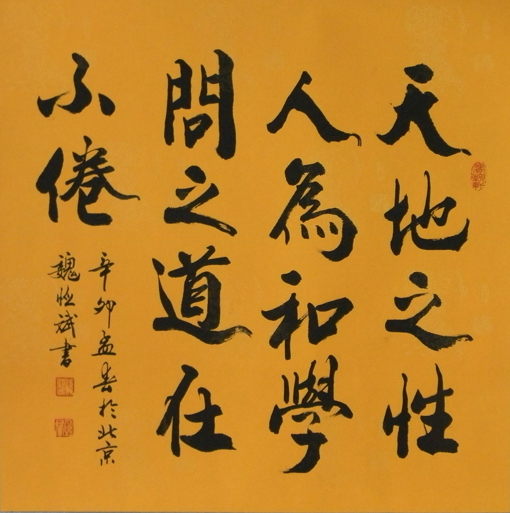 天地之性
人為和學
問之道在
不倦
辛卯孟春於北京
魏恒斌書